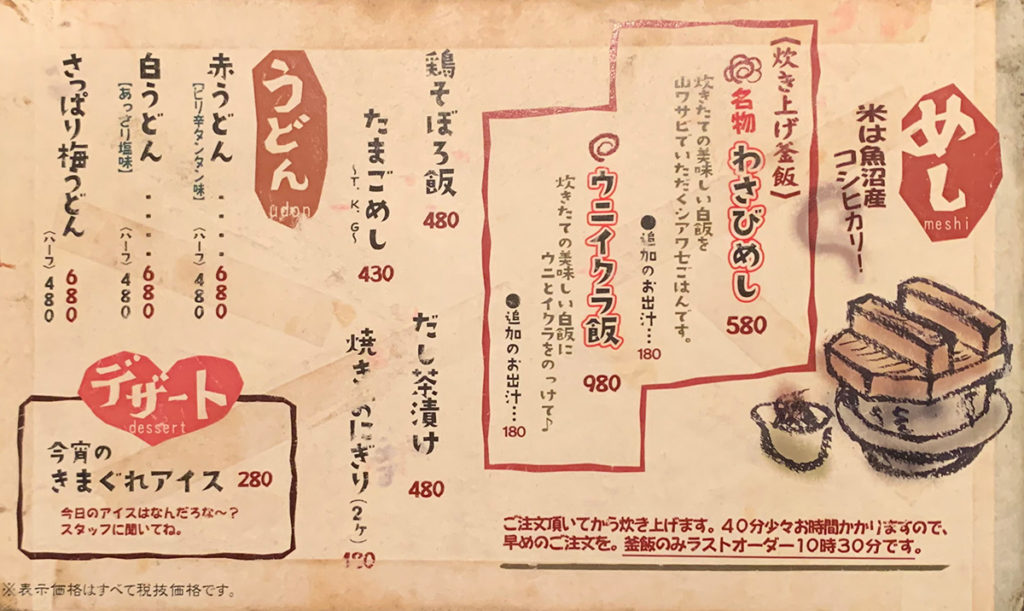 めし
meshi
米は魚沼産
コシヒカリー!
《炊き上げ釜飯》
名物 わさびめし 580
炊きたての美味しい白飯を
山ワサビでいただくシアワセごはんです。
●追加のお出汁… 180
ウニイクラ飯 980
炊きたての美味しい白飯に
ウニとイクラをのっけて♪
●追加のお出汁… 180
ご注文頂いてから炊き上げます。40分少々お時間かかりますので、
早めのご注文を。釜飯のみラストオーダー10時30分です。
鶏そぼろ飯 480
だし茶漬け 480
たまごめし
~T.K.G~ 430
焼き にぎり(2ヶ)
うどん
udon
赤うどん ・・・・680
[ピリ辛タンタン味] (ハーフ)480
白うどん ・・・・680
[あっさり塩味] (ハーフ)480
さっぱり梅うどん 680
(ハーフ)480
デザート
dessert
今宵の
きまぐれアイス 280
今日のアイスはなんだろな~?
スタッフに聞いてね。
※表示価格はすべて税抜価格です。